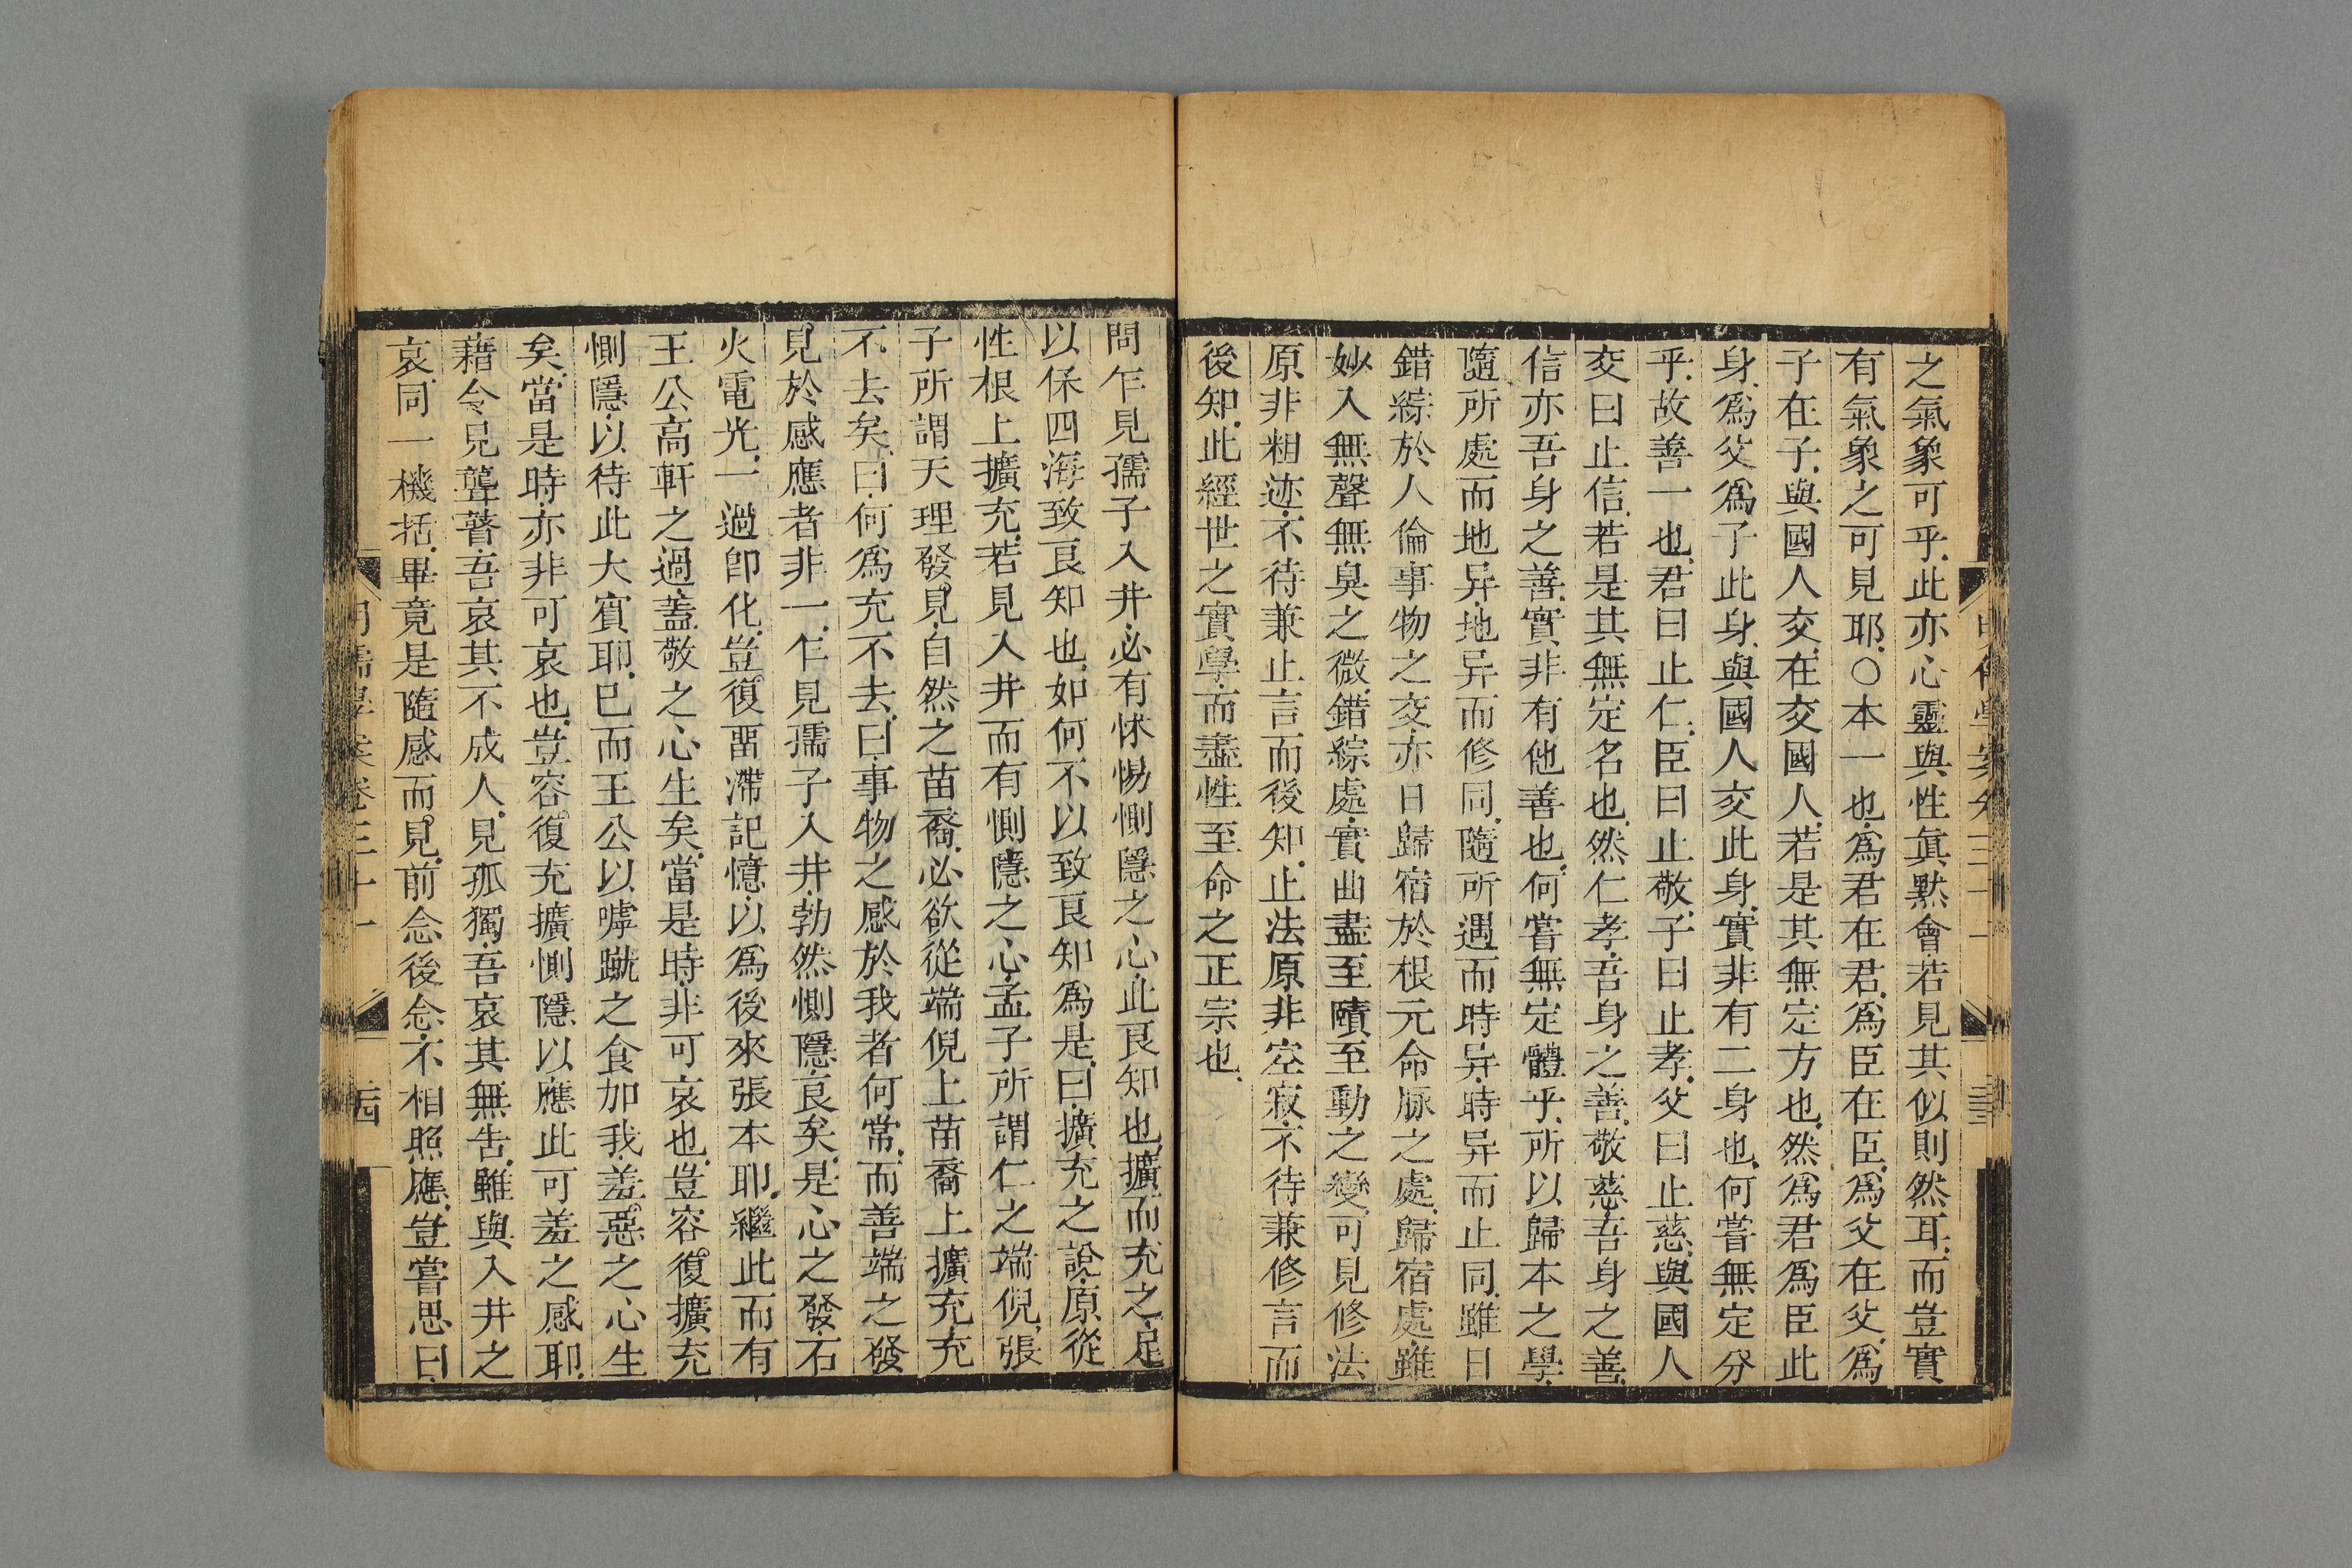 之氣象可乎此亦心靈與性眞默會若見其似則然耳而豈實
有氣象之可見耶○本一也爲君在君爲臣在臣爲父在父爲
子在子與國人交在交國人若是其無定方也然爲君爲臣此
身爲父爲子此身與國人交此身實非有二身也何嘗無定分
乎故善一也君曰止仁臣曰止敬子曰止孝父曰止慈與國人
交曰止信若是其無定名也然仁孝吾身之善敬慈吾身之善
信亦吾身之善實非有他善也何嘗無定體乎所以歸本之學
隨所處而地异地异而修同隨所遇而時异時异而止同雖曰
錯綜於人倫事物之交亦曰歸宿於根元命脉之處歸宿處雖
妙入無聲無臭之微錯綜處實曲盡至賾至動之變可見修法
原非粗迹不待兼止言而後知止法原非空寂不待兼修言而
後知此經世之實學而盡性至命之正宗也
問乍見孺子入井必有怵惕惻隱之心此良知也擴而充之足
以保四海致良知也如何不以致良知爲是曰擴充之說原從
性根上擴充若見入井而有惻隱之心孟子所謂仁之端倪張
子所謂天理發見自然之苗裔必欲從端倪上苗裔上擴充充
不去矣曰何爲充不去曰事物之感於我者何常而善端之發
見於感應者非一乍見孺子入井勃然惻隱良矣是心之發石
火電光一過卽化豈復畱滯記憶以爲後來張本耶繼此而有
王公高軒之過蓋敬之心生矣當是時非可哀也豈容復擴充
惻隱以待此大賓耶已而王公以嘑蹴之食加我羞惡之心生
矣當是時亦非可哀也豈容復充擴惻隱以應此可羞之感耶
藉令見聾瞽吾哀其不成人見孤獨吾哀其無告雖與入井之
哀同一機括畢竟是隨感而見前念後念不相照應豈嘗思曰
明儒學案卷三十一